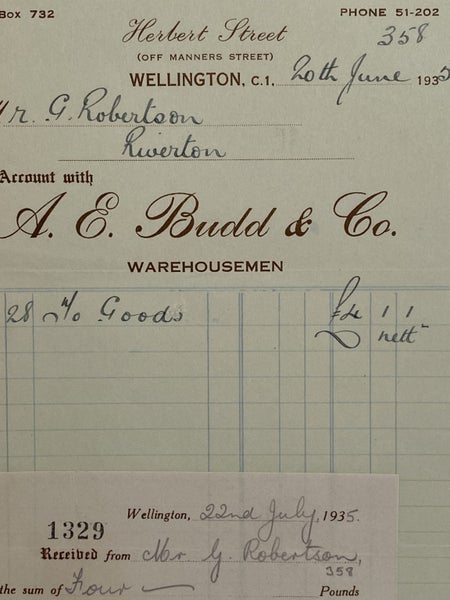 Box 732 PHONE 51-202
Herbert Street 358
(OFF MANNERS STREET)
WELLINGTON, C.1. 20th June 1935
Mr. G. Robertson
Riverton
Account with
A. E. Budd & Co.
WAREHOUSEMEN
28 Goods £4 1 1
nett
Wellington, 22nd July, 1935.
1329
Received from Mr. G. Robertson,
358
the sum of Four Pounds